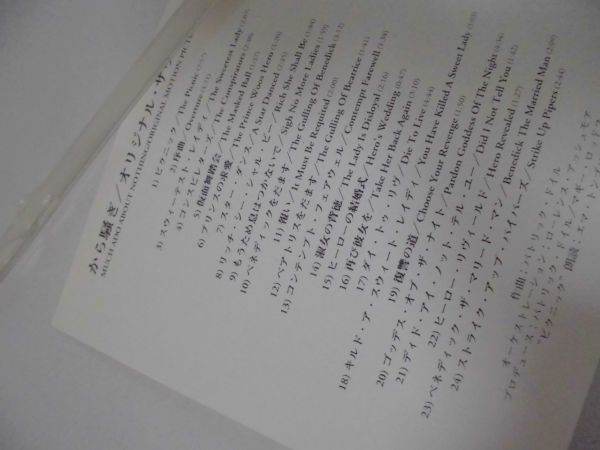 から騒ぎ/オリジナル・サウ
MUCH ADO ABOUT NOTHING/ORIGINAL MOTION PIC
1) ピクニック/The Picnic (2:57)
2) 序曲/Overture (4:21)
3) スウィーテスト・レイディ/The Sweetest Lady (2:07)
4) コンスピレターズ/The Conspirators
5) 仮面舞踏会/The Masked Ball (1:57)
6) プリンスの求愛/The Prince Woos Hero (1:20)
7) スター・ダンス/A Star Danced (2:45)
8) リッチ・シー・シャル・ビー/Rich She Shall Be (1:44)
9) もうため息はつかないで/Sigh No More Ladies (1:59)
10) ベネディックをだます/The Gulling Of Benedick (3:12)
11) 報い/It Must Be Requited (2:00)
12) ベアトリスをだます/The Gulling Of Beatrice (1:41)
13) コンテンプト・フェアウェル/Contempt Farewell (1:34)
14) 淑女の背徳/The Lady Is Disloyal (2:16)
15) ヒーローの結婚式/Hero's Wedding (0:47)
16) 再び彼女を/Take Her Back Again (3:10)
17) ダイ・トゥ・リヴ/Die To Live (4:44)
18) キルド・ア・スウィート・レイディ/You Have Killed A Sweet Lady (3:05)
19) 復讐の道/Choose Your Revenge (1:50)
20) ゴッデス・オブ・ザ・ナイト/Pardon Goddess Of The Night (4:34)
21) ディド・アイ・ノット・テル・ユー/Did I Not Tell You (1:42)
22) ヒーロー・リヴィールド/Hero Revealed (1:27)
23) ベネディック・ザ・マリード・マン/Benedick The Married Man (2:09)
24) ストライク・アップ・パイパーズ/Strike Up Pipers (2:44)
作曲:パトリック・ドイル
オーケストレーション:ローレンス・アシュモア
プロデュース:パトリック・ドイル/マギー・ロッドフ
ピクニック 朗読:エマ・トンプ